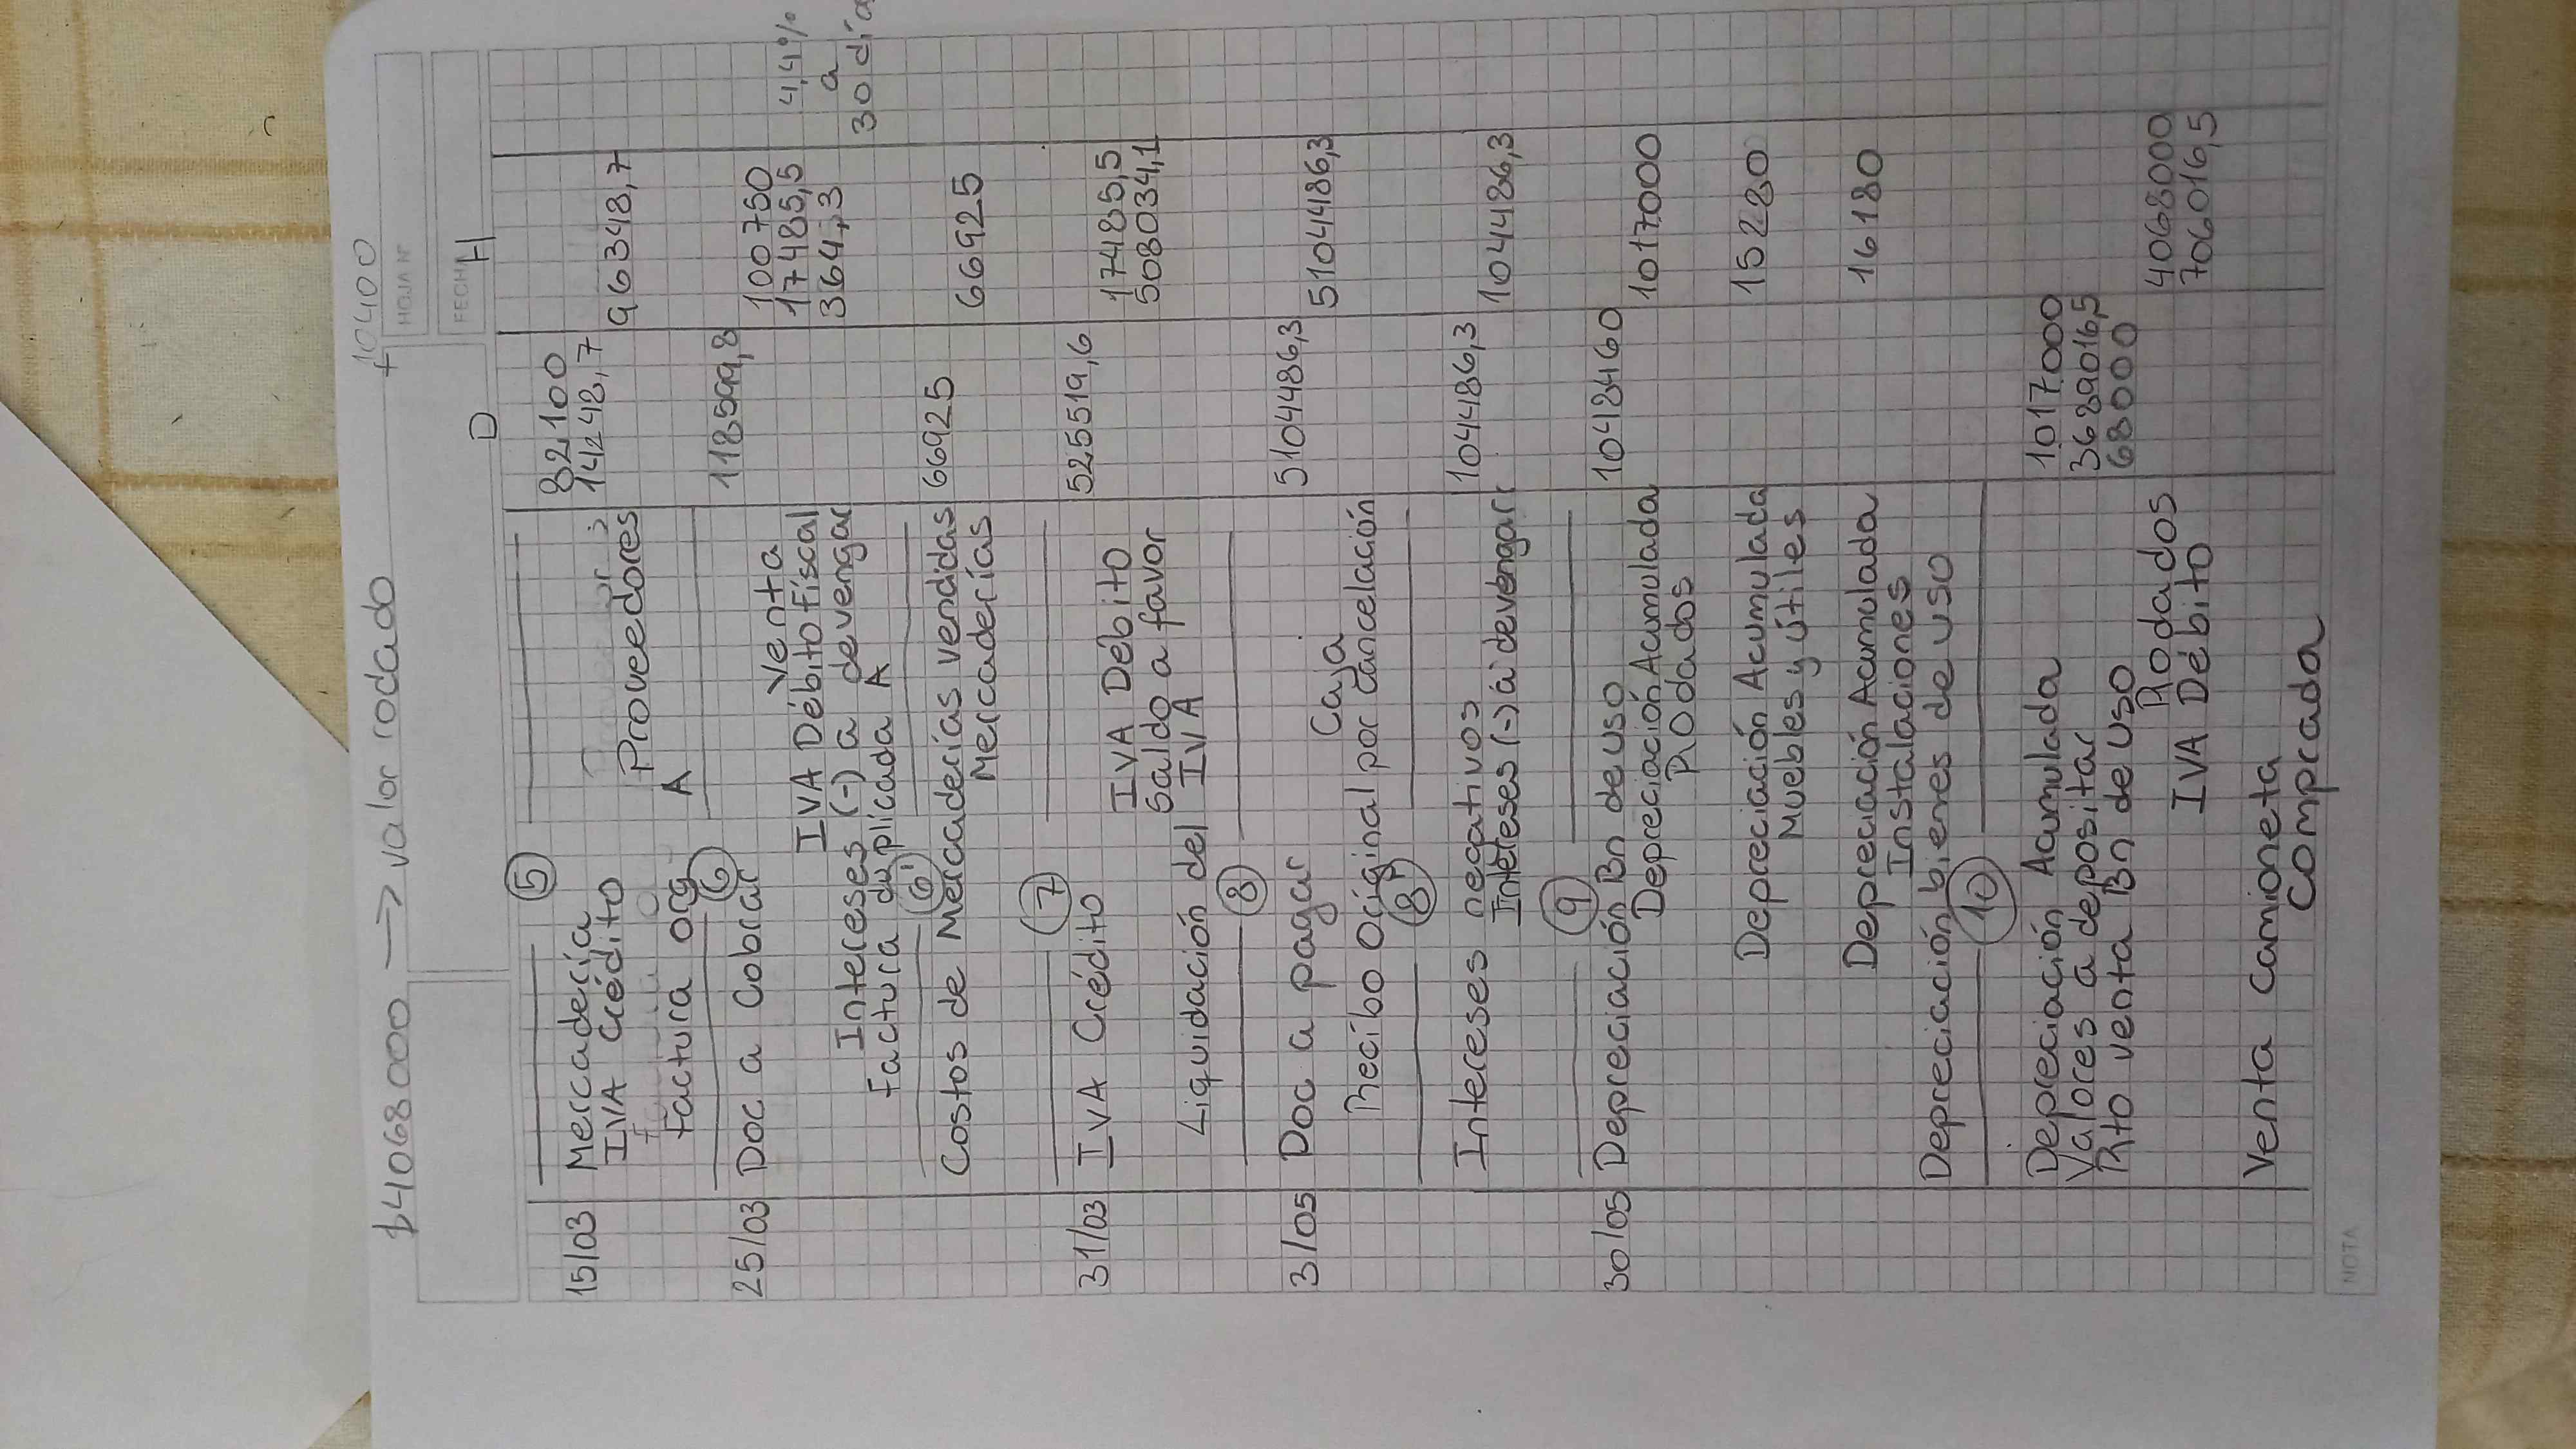 4068000 → valor rodado
10400
HOJA Nº
FECHA
D H
5
15/03 Mercadería 82100
IVA Crédito 14248,7
Proveedores 96348,7
Factura org A
6
25/03 Doc a Cobrar 118599,8
Venta 100750
IVA Débito fiscal 17485,5 4,4%
Intereses (-) a devengar 364,3 a
Factura duplicada A 30 día
6'
Costos de Mercaderías vendidas 66925
Mercaderías 66925
7
31/03 IVA Crédito 5255519,6
IVA Débito 17485,5
Saldo a favor 508034,1
Liquidación del IVA
8
31/05 Doc a pagar 5104486,3
Caja 5104486,3
Recibo Original por cancelación
8'
Intereses negativos 104486,3
Inteteses (-) a devengar 104486,3
9
30/05 Depreciación Bn de uso 1048460
Depreciación Acumulada 1017000
Rodados
Depreciación Acumulada 15280
Muebles y útiles
Depreciación Acumulada 16180
Instalaciones
Depreciación bienes de uso
10
Depreciación Acumulada 1017000
Valores a depositar 3689016,5
Rto venta Bn de uso 68000
Rodados 4068000
IVA Débito 706016,5
Venta camioneta
Comprada
NOTA